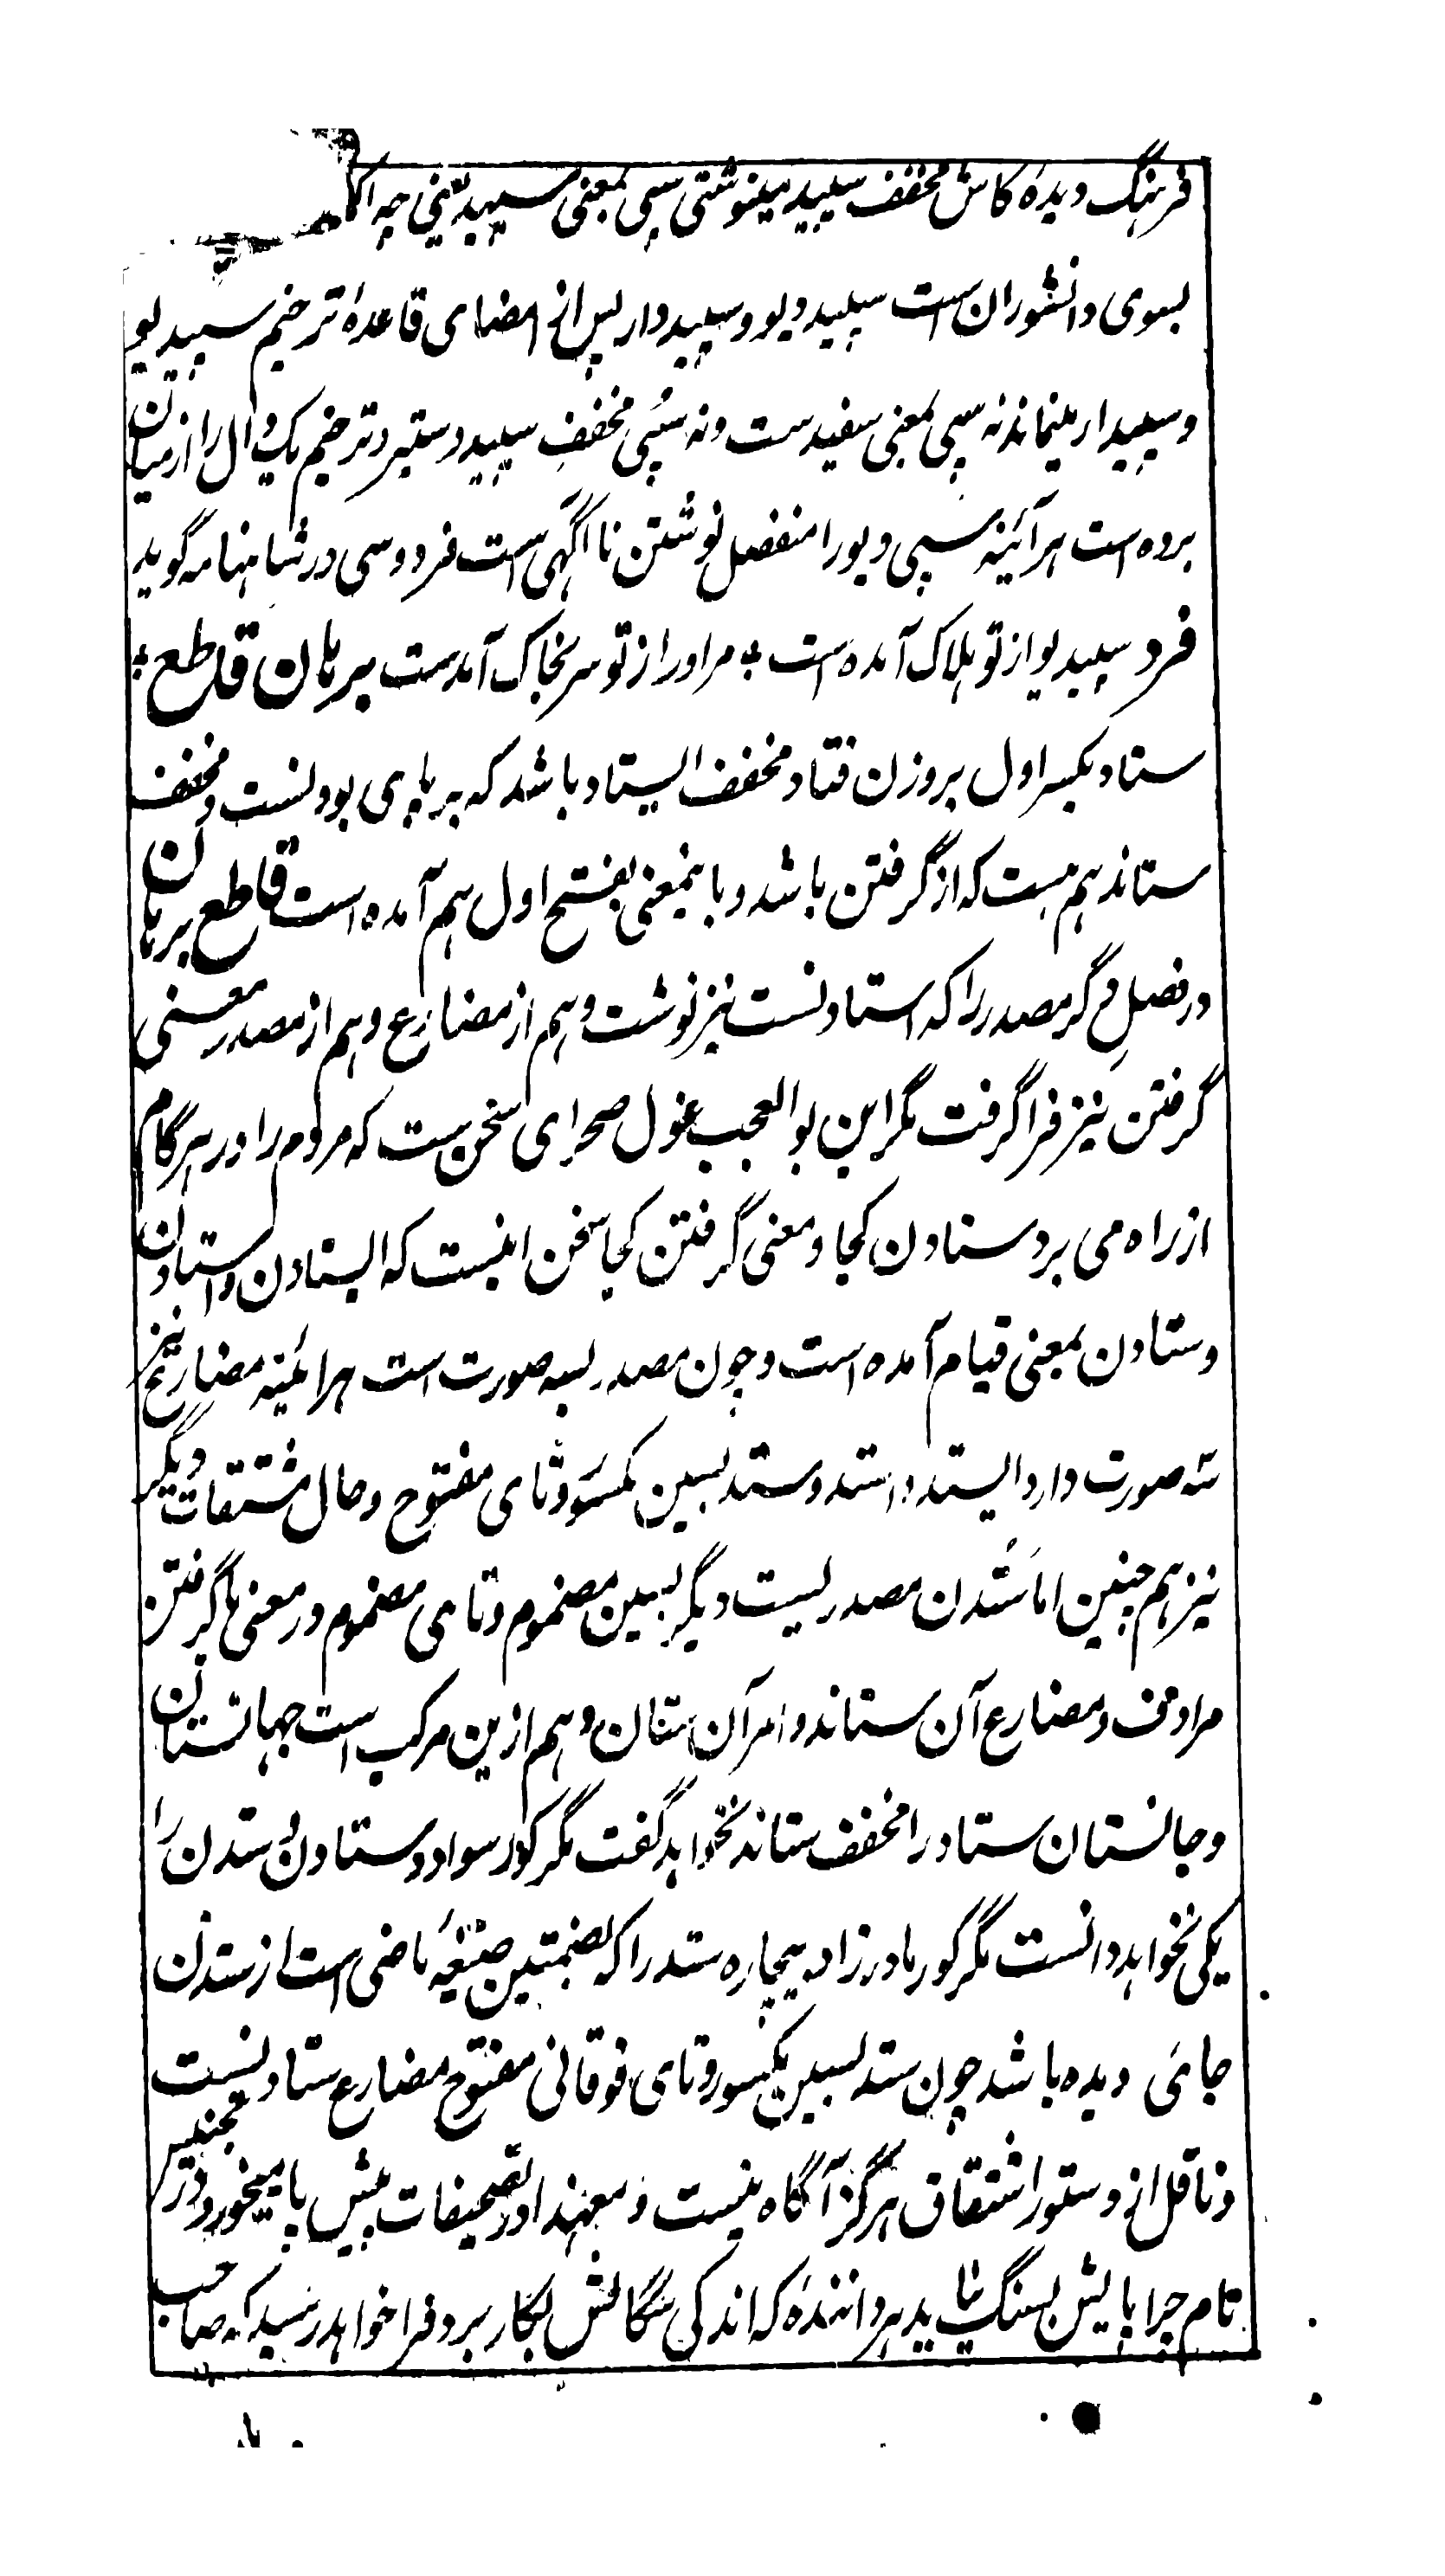 فرهنگ دیدۀ کاش مخفف سپید مینوشتی سپی بمعنی سپید یعنی چه
بسوی دانشوران ست سپید دیو و سپید دار پس از امضای قاعدۀ ترخیم سپیدیو
و سپیدار میماند نه سپی بمعنی سفیدست و نه سپی مخفف سپید دستبرد ترخیم یک دال را از میان
برده است هرآئینه سپی دیو را منفصل نوشتن ناآگهی ست فردوسی در شاهنامه گوید
فرد سپیدیو از تو هلاک آمده است ؛ مر او را ز تو سر بخاک آمدست برهان قاطع ؛
ستاد بکسر اول بروزن فتاد مخفف ایستاد باشد که برپای بودنست و مخفف
ستاند هم هست که از گرفتن باشد و باینمعنی بفتح اول هم آمده است قاطع برهان
در فصل دگر مصدر را که استادنست نیز نوشت و هم از مضارع و هم از مصدر معنی
گرفتن نیز فرا گرفت مگر این بوالعجب غول صحرای سخن ست که مردم را در هر گام
از راه می برد ستادن کجا و معنی گرفتن کجا سخن اینست که ایستادن و استادن
و ستادن بمعنی قیام آمده است و چون مصدر بسه صورت است هرآئینه مضارع نیز
سه صورت دارد ایستد و استد و ستد بسین مکسور و تای مفتوح و حال مشتقات دیگر
نیز هم چنین اما ستدن مصدریست دیگر بسین مضموم و تای مضموم در معنی با گرفتن
مرادف و مضارع آن ستاند و امر آن ستان و هم ازین مرکب است جهانستان
و جانستان ستاد را مخفف ستاند نخواهد گفت مگر کور سواد و ستادن و ستدن را
یکی نخواهد دانست مگر کور مادرزاد بیچاره ستد را که بضمتین صیغۀ ماضی است از ستدن
جائی دیده باشد چون ستد بسین مکسور و تای فوقانی مفتوح مضارع ستادنیست
و ناقل از دستور اشتقاق هرگز آگاه نیست و معهذا در تصحیفات پیش پا میخورد در چنین
تام چرا پایش بسنگ نیاید هر دانندۀ که اندکی سگالش بکار برد فرا خواهد رسید که صاحب